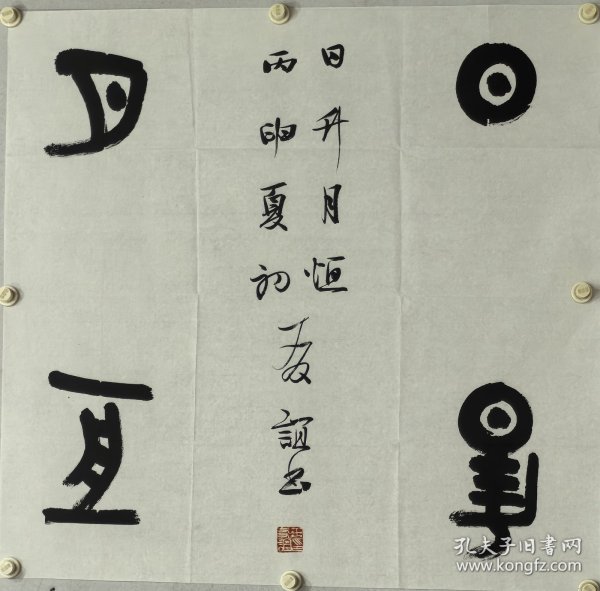 日昇
日升月恒
丙申夏初
誼书
月亙
孔夫子旧書网
www.kongfz.com